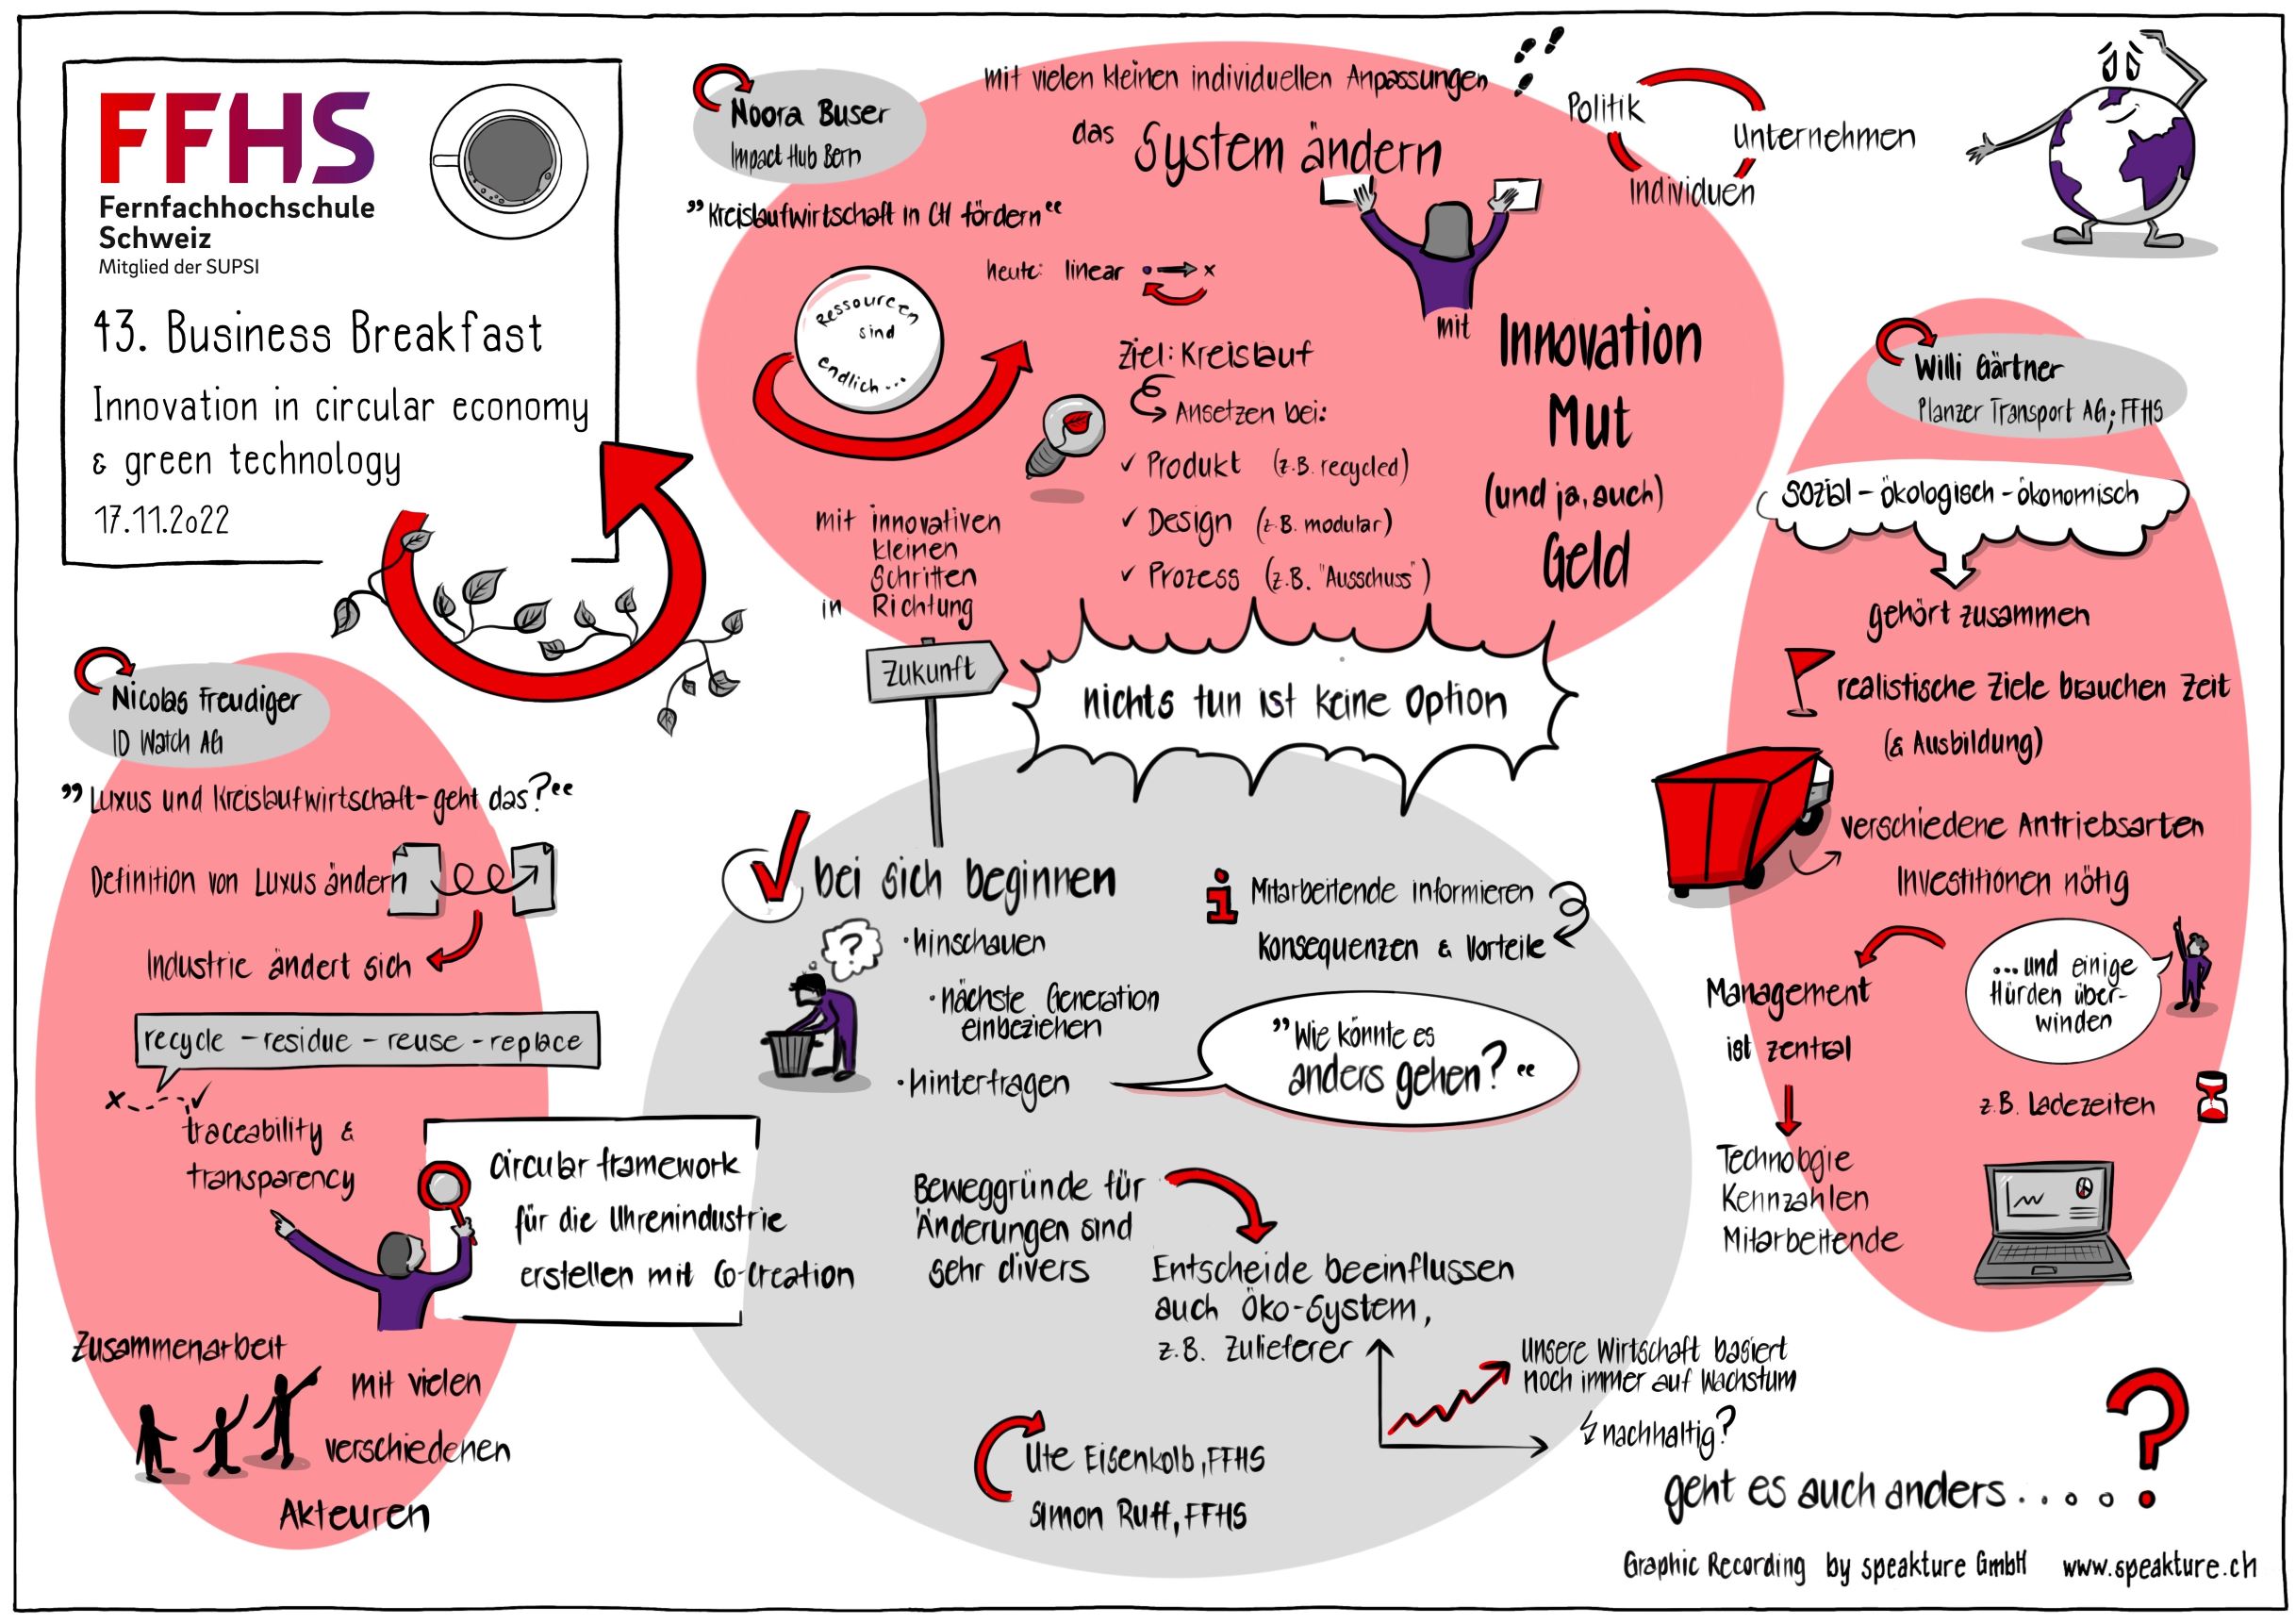 FFHS
Fernfachhochschule
Schweiz
Mitglied der SUPSI
43. Business Breakfast
Innovation in circular economy
& green technology
17.11.2022
Noora Buser
Impact Hub Bern
"Kreislaufwirtschaft in CH fördern"
mit vielen kleinen individuellen Anpassungen
das System ändern
Politik
Unternehmen
Individuen
heute: linear
Ressourcen
sind
endlich...
Ziel: Kreislauf
Ansetzen bei:
✓ Produkt (z.B. recycled)
✓ Design (z.B. modular)
✓ Prozess (z.B. "Ausschuss")
mit Innovation
Mut
(und ja, auch)
Geld
mit innovativen
kleinen
Schritten
in Richtung
Zukunft
nichts tun ist keine Option
Willi Gärtner
Planzer Transport AG; FFHS
sozial - ökologisch - ökonomisch
gehört zusammen
realistische Ziele brauchen Zeit
(& Ausbildung)
verschiedene Antriebsarten
Investitionen nötig
...und einige
Hürden über-
winden
z.B. Ladezeiten
Management
ist zentral
Technologie
Kennzahlen
Mitarbeitende
Nicolas Freudiger
ID Watch AG
"Luxus und Kreislaufwirtschaft - geht das?"
Definition von Luxus ändern
Industrie ändert sich
recycle - residue - reuse - replace
x
✓
traceability &
transparency
circular framework
für die Uhrenindustrie
erstellen mit Co-Creation
Zusammenarbeit
mit vielen
verschiedenen
Akteuren
bei sich beginnen
?
· hinschauen
· nächste Generation
einbeziehen
· hinterfragen
i Mitarbeitende informieren
Konsequenzen & Vorteile
"Wie könnte es
anders gehen?"
Beweggründe für
Änderungen sind
sehr divers
Entscheide beeinflussen
auch Öko-System,
z.B. Zulieferer
unsere Wirtschaft basiert
noch immer auf Wachstum
nachhaltig?
Ute Eisenkolb, FFHS
Simon Ruff, FFHS
geht es auch anders.....?
Graphic Recording by speakture GmbH www.speakture.ch